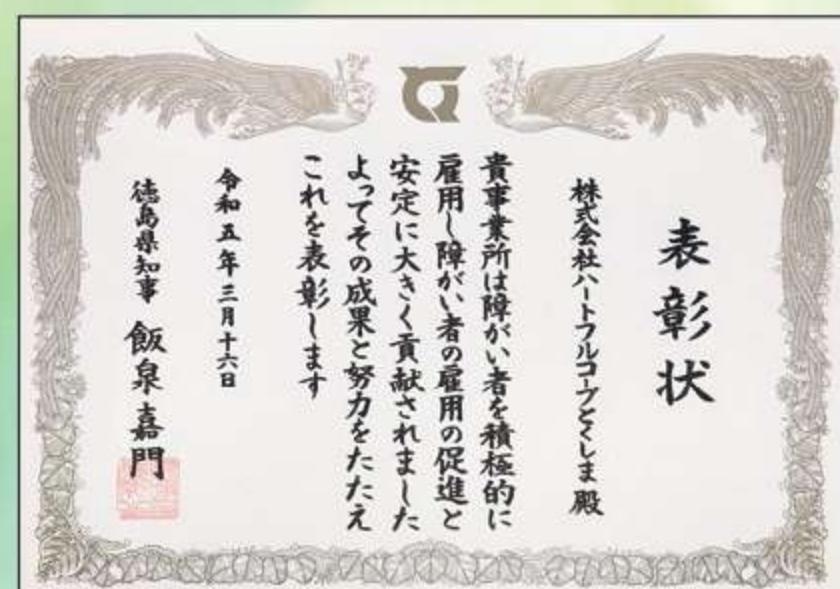 表彰状
株式会社ハートフルコープとくしま 殿
貴事業所は障がい者を積極的に
雇用し障がい者の雇用の促進と
安定に大きく貢献されました
よってその成果と努力をたたえ
これを表彰します
令和五年三月十六日
徳島県知事 飯泉嘉門